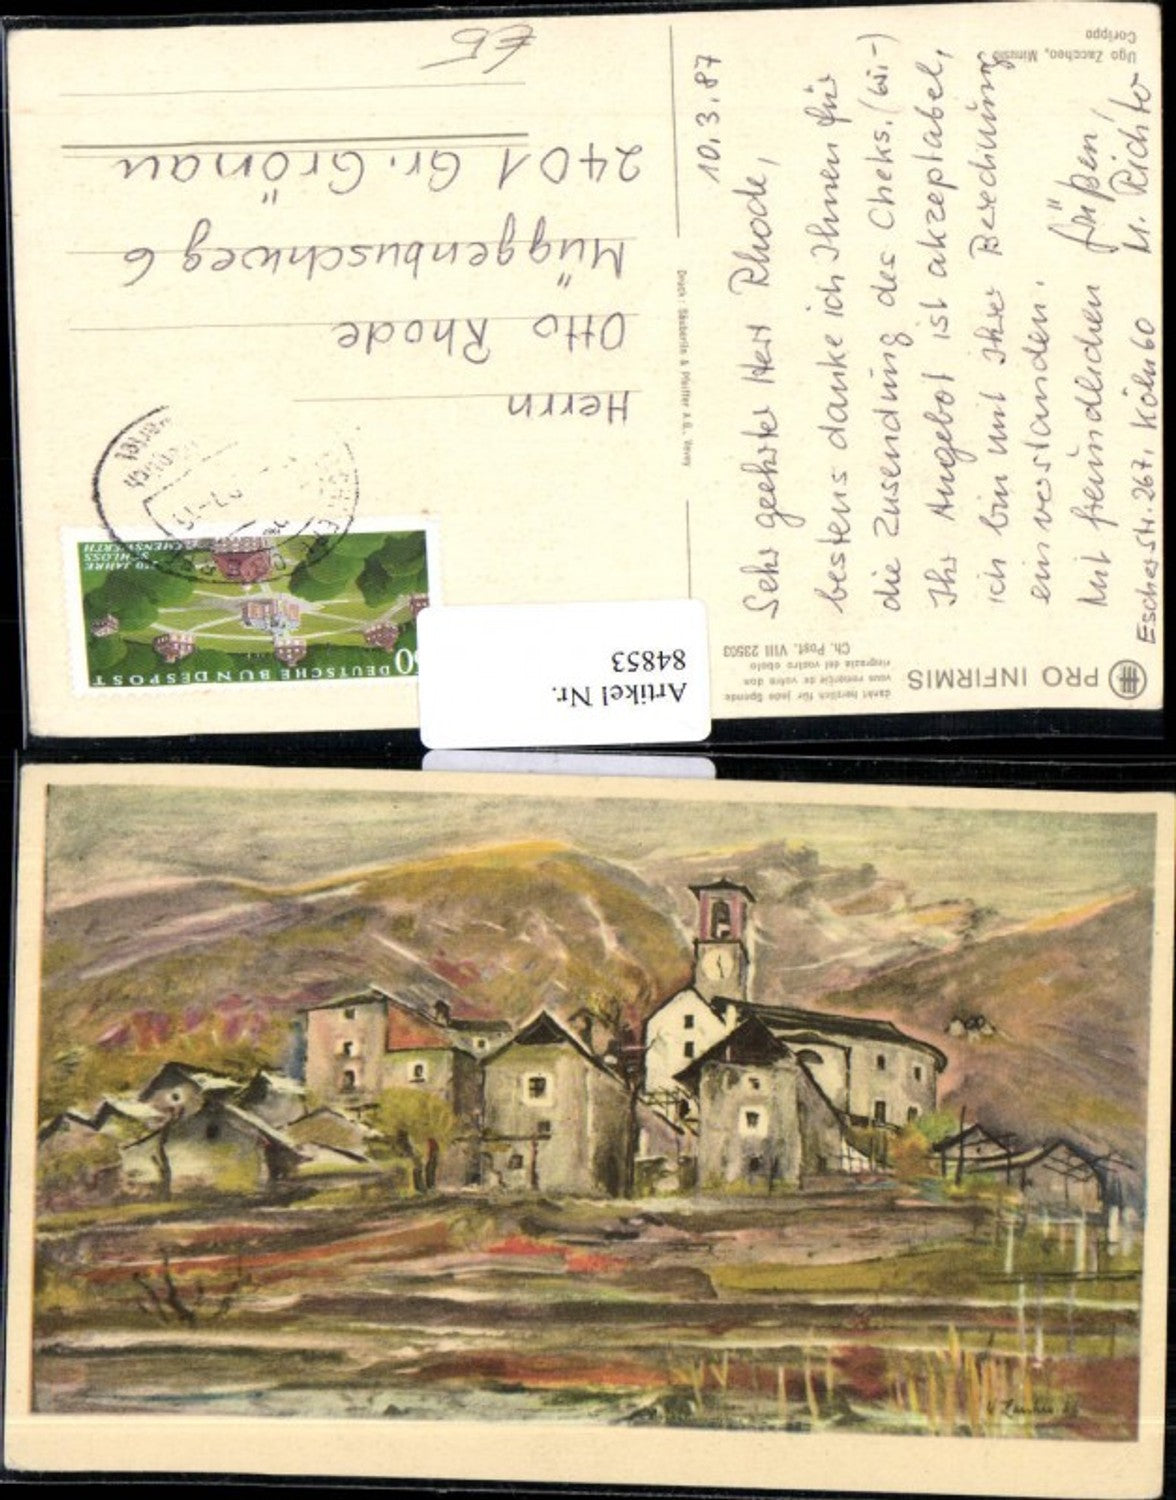 Ugo Zaccheo, Minusio
Corippo
10.3.87
Sehr geehrter Herr Rhode,
bestens danke ich Ihnen für
die Zusendung des Cheks.
Ihr Angebot ist akzeptabel,
ich bin mit Ihrer Berechnung
einverstanden.
Mit freundlichen Grüßen,
M. Richter
Escher Str. 267, Köln 60
PRO INFIRMIS
dankt herzlich für jede Spende
vous remercie de votre don
ringrazia del vostro obolo
Ch. Post. VIII 23503
Druck: Säuberlin & Pfeiffer A.G., Vevey
Herrn
Otto Rhode
Müggenbuschweg 6
2401 Gr. Grönau
€5
DEUTSCHE BUNDESPOST
250 JAHRE
SCHLOSS
CLEMENSWERTH
Artikel Nr.
84853